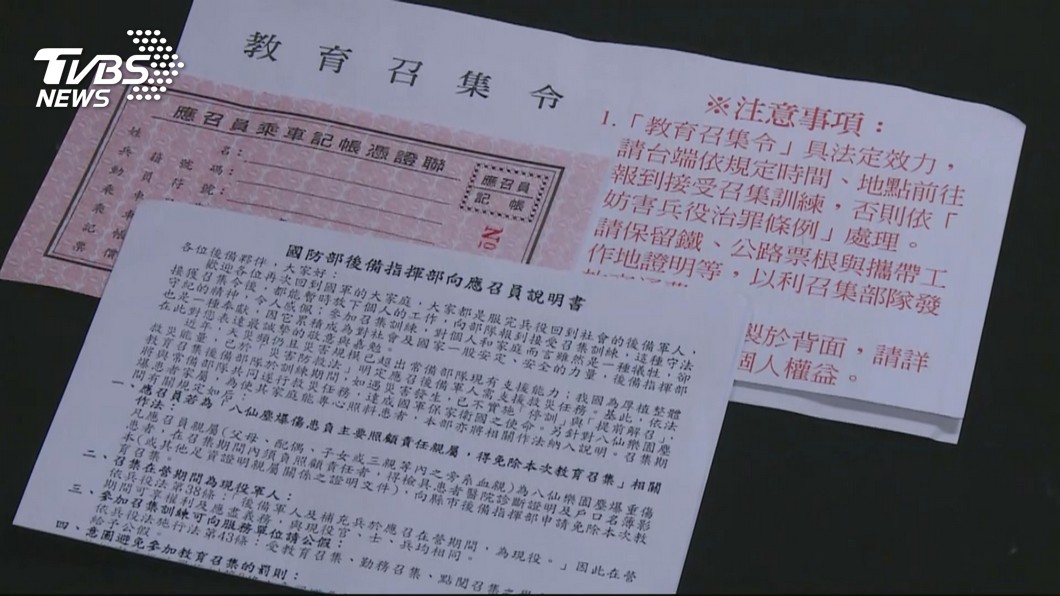 TVBS
NEWS
教育召集令
應召員乘車記帳憑證聯
姓名：
兵籍號碼：
應召員
記帳
No
※注意事項：
1.「教育召集令」具法定效力，
請台端依規定時間、地點前往
報到接受召集訓練，否則依「
妨害兵役治罪條例」處理。
請保留鐵、公路票根與攜帶工
作地證明等，以利召集部隊發
製於背面，請詳
個人權益。
國防部後備指揮部向應召員說明書
各位後備夥伴，大家好：
歡迎各位再次回到國軍的大家庭，大家都是服完兵役回到社會的後備軍人，
接獲召集令後，都能暫時放下個人的工作，向部隊報到接受召集訓練，這種守法
守紀的精神，令人感佩；參加召集訓練，對個人和家庭而言雖然是一種犧牲，卻
也是一種奉獻，因它累積成為對社會及國家一股安定、安全的力量，後備指揮部
在此對您表達最誠摯的敬意與嘉勉。
近年，天災頻仍且災害規模已超出常備部隊現有支援能力；我國為厚植整體
救災能量，已於「災害防救法」明定應召後備軍人需支援救災任務。基此，依法
教育召集後備部隊於訓練期間，如遇災害發生，已不實施「停訓」與「提前解召」，
將與常備部隊共同遂行救災任務，達成國軍保家衛國之使命。另針對八仙樂園塵
爆患者家屬，為使其家庭能專心照料患者，本部亦將相關作法納入說明。召集期
間有關規定如后：
一、應召員若為「八仙塵爆傷患負主要照顧責任親屬，得免除本次教育召集」相關
作法：
凡應召員親屬(父母、配偶、子女或三親等內之旁系血親)為八仙樂園塵爆重傷
患者，在召集期間內須負照顧責任者，得檢具患者醫院診斷證明及戶口名簿影
本(或其他足資證明親屬關係之證明文件)，向縣市後備指揮部申請免除本次教
育召集。
二、召集在營期間為現役軍人：
依兵役法第38條：「後備軍人及補充兵於應召在營期間，為現役。」因此在營
期間可享權利及應盡義務，與現役官、士、兵均相同。
三、參加召集訓練可向服務單位請公假：
依兵役法施行法第43條：受教育召集、勤務召集、點閱召集之
給予公假。
四、意圖避免參加教育召集的罰則：